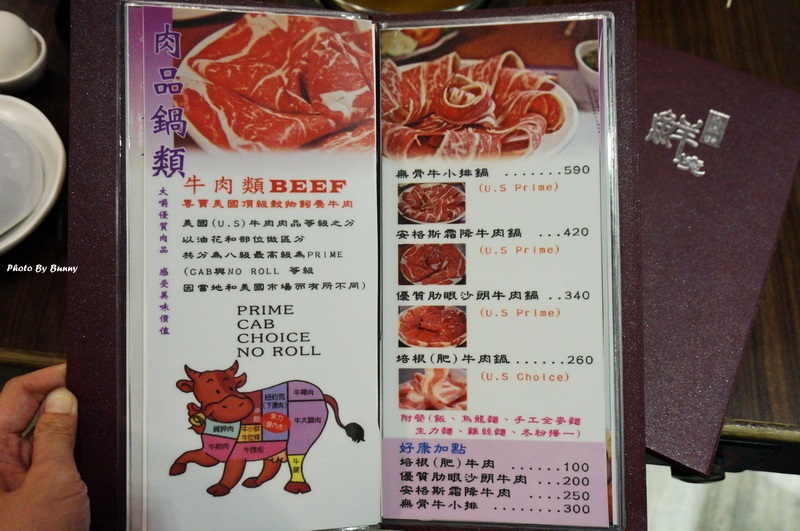 肉品鍋類
大嚼優質肉品 感受美味價值
牛肉類BEEF
專賣美國頂級穀物飼養牛肉
美國(U.S)牛肉肉品等級之分
以油花和部位做區分
共分為八級最高級為PRIME
(CAB與NO ROLL 等級
因當地和美國市場而有所不同)
PRIME
CAB
CHOICE
NO ROLL
紐約克
(下漕肉)
牛臀肉
牛大腿肉
牛小排
牛肋條
鹹胛肉
牛胸肉
牛腱
無骨牛小排鍋 .......590
(U.S Prime)
安格斯霜降牛肉鍋 ...420
(U.S Prime)
優質肋眼沙朗牛肉鍋 ..340
(U.S Prime)
培根(肥)牛肉鍋.......260
(U.S Choice)
附餐(飯、烏龍麵、手工全麥麵
生力麵、雞絲麵、冬粉擇一)
好康加點
培根(肥)牛肉 ......100
優質肋眼沙朗牛肉 ...200
安格斯霜降牛肉 ....250
無骨牛小排 ........300
鮮
Photo By Bunny